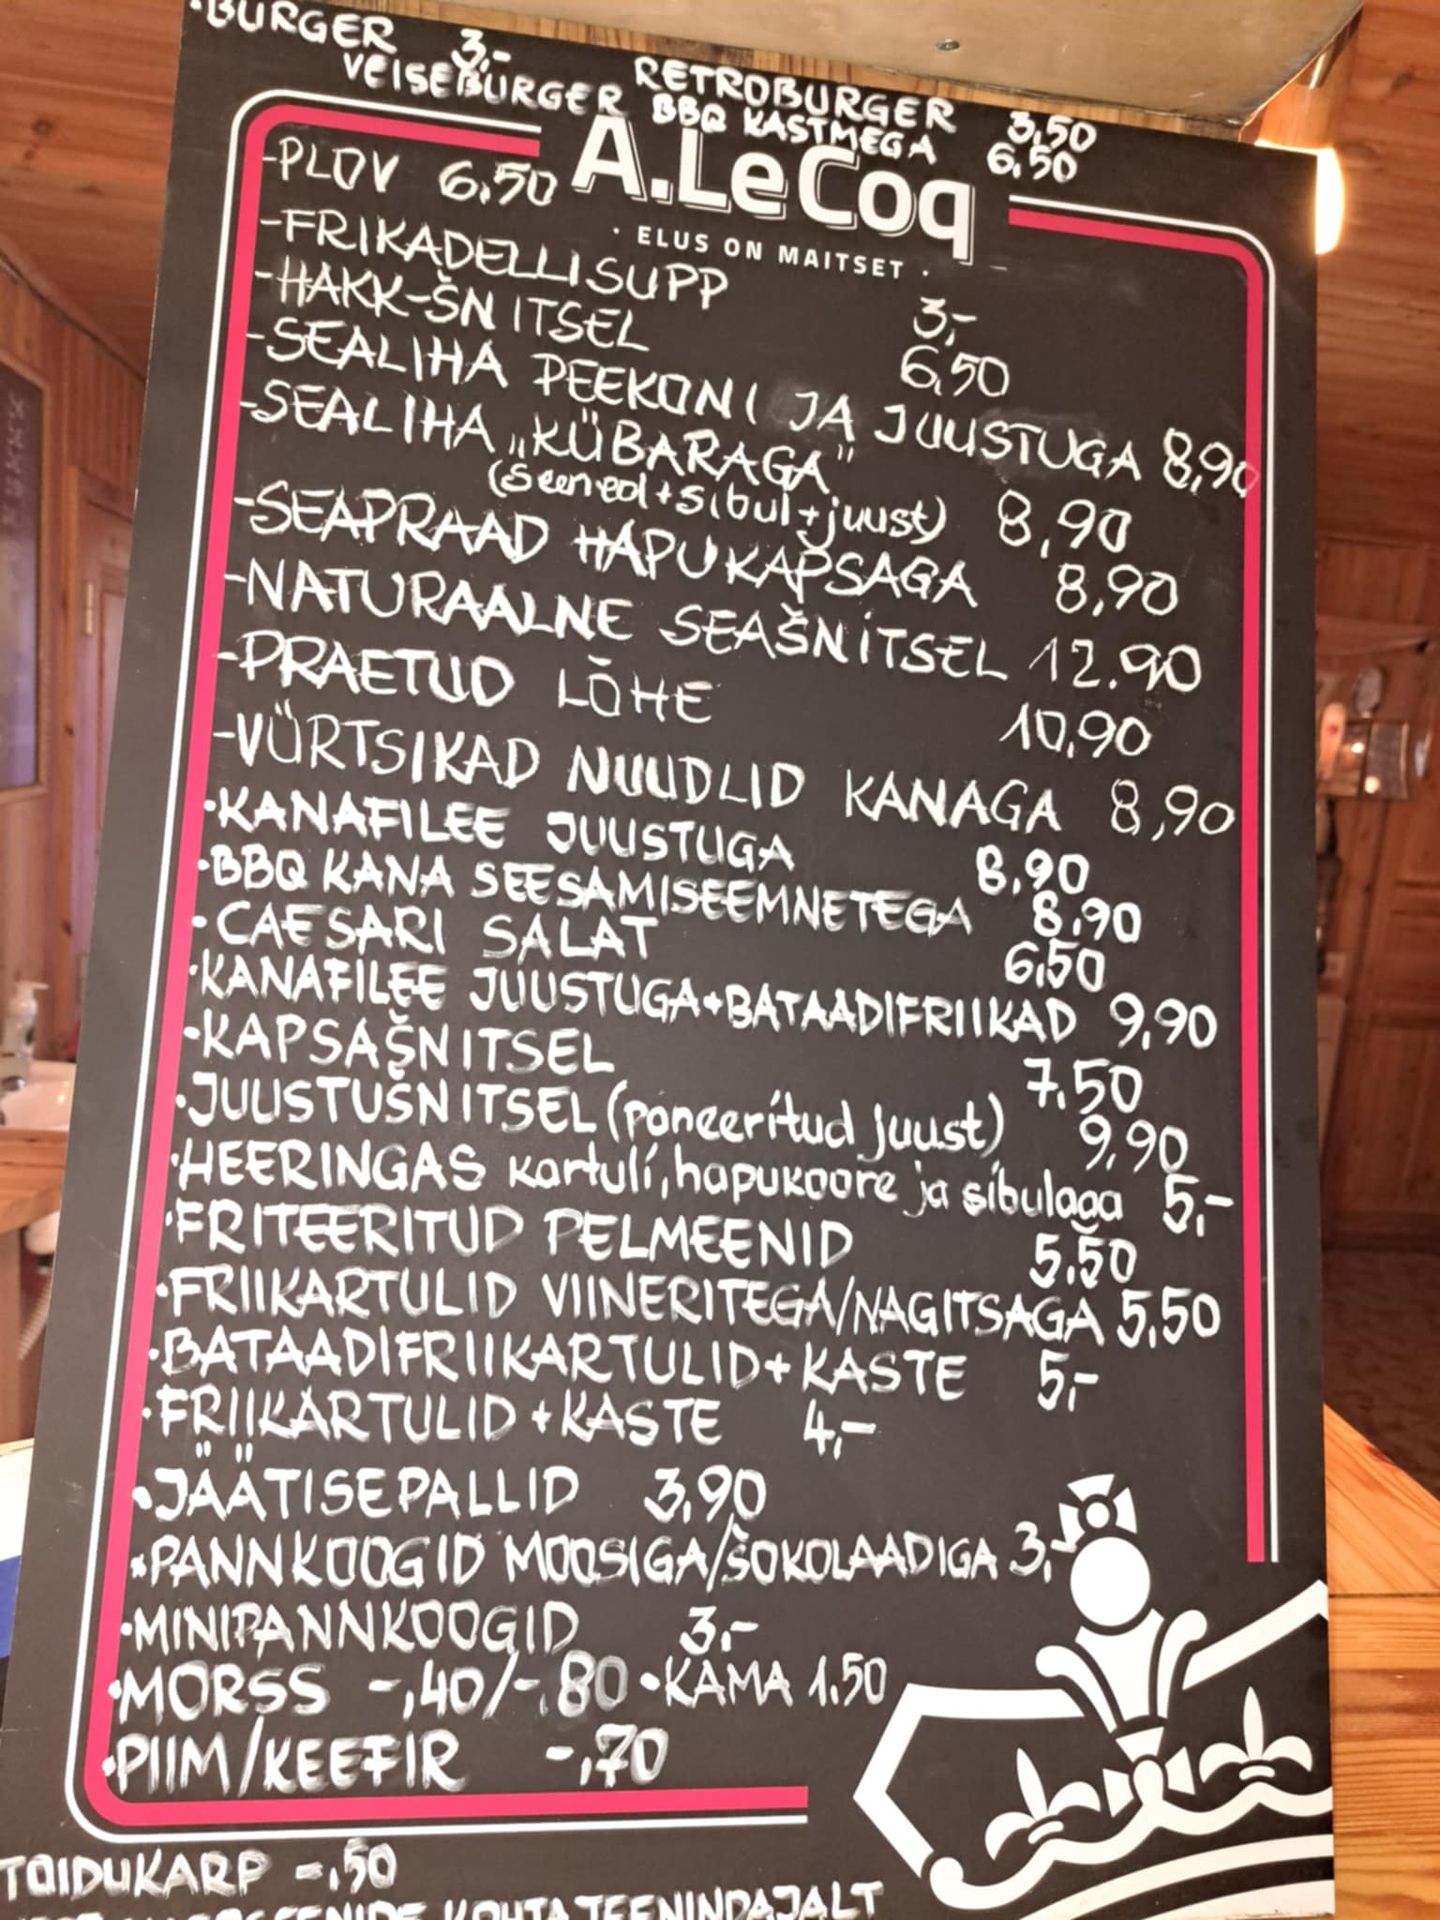 ·BURGER 3,-
RETROBURGER 3,50
VEISEBURGER BBQ KASTMEGA 6,50
A.LeCoq
· ELUS ON MAITSET ·
-PLOV 6,50
-FRIKADELLISUPP 3,-
-HAKK-ŠNITSEL 6,50
-SEALIHA PEEKONI JA JUUSTUGA 8,90
-SEALIHA „KÜBARAGA"
(seened+sibul+juust) 8,90
-SEAPRAAD HAPUKAPSAGA 8,90
-NATURAALNE SEAŠNITSEL 12.90
-PRAETUD LÕHE 10,90
-VÜRTSIKAD NUUDLID KANAGA 8,90
·KANAFILEE JUUSTUGA 8,90
·BBQ KANA SEESAMISEEMNETEGA 8,90
·CAESARI SALAT 6,50
·KANAFILEE JUUSTUGA+BATAADIFRIIKAD 9,90
·KAPSAŠNITSEL 7,50
·JUUSTUŠNITSEL (paneeritud juust) 9,90
·HEERINGAS kartuli, hapukoore ja sibulaga 5,-
·FRITEERITUD PELMEENID 5,50
·FRIIKARTULID VIINERITEGA/NAGITSAGA 5,50
·BATAADIFRIIKARTULID+KASTE 5,-
·FRIIKARTULID+KASTE 4,-
·JÄÄTISEPALLID 3,90
·PANNKOOGID MOOSIGA/ŠOKOLAADIGA 3,-
·MINIPANNKOOGID 3,-
·MORSS -,40/-,80 ·KAMA 1.50
·PIIM/KEEFIR -,70
TOIDUKARP -,50
KOHTA TEENINDAJALT